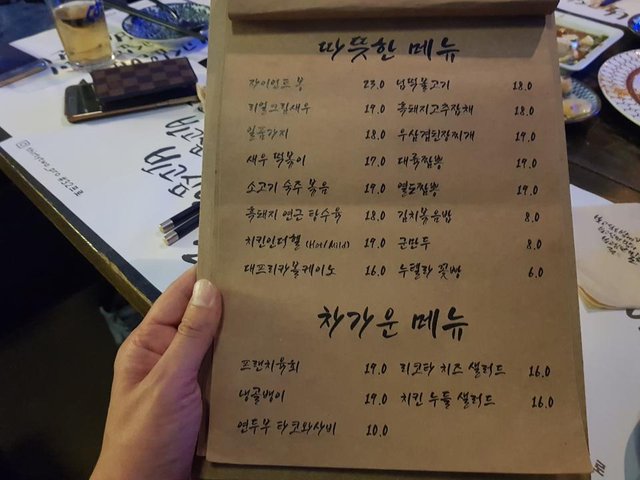 따뜻한 메뉴
자이언트 봉 23.0 넙떡불고기 18.0
리얼크림새우 19.0 흑돼지고추잡채 18.0
일품가지 18.0 우삼겹된장찌개 19.0
새우 떡볶이 17.0 대륙짬뽕 19.0
소고기 숙주 볶음 19.0 열도짬뽕 19.0
흑돼지 연근 탕수육 18.0 김치볶음밥 8.0
치킨인더헬 (Hot/Mild) 19.0 군만두 8.0
대프리카볼케이노 16.0 누텔라 꽃빵 6.0
차가운 메뉴
프랜치육회 19.0 리코타 치즈 샐러드 16.0
냉골뱅이 19.0 치킨 누들 샐러드 16.0
연두부 타코와사비 10.0